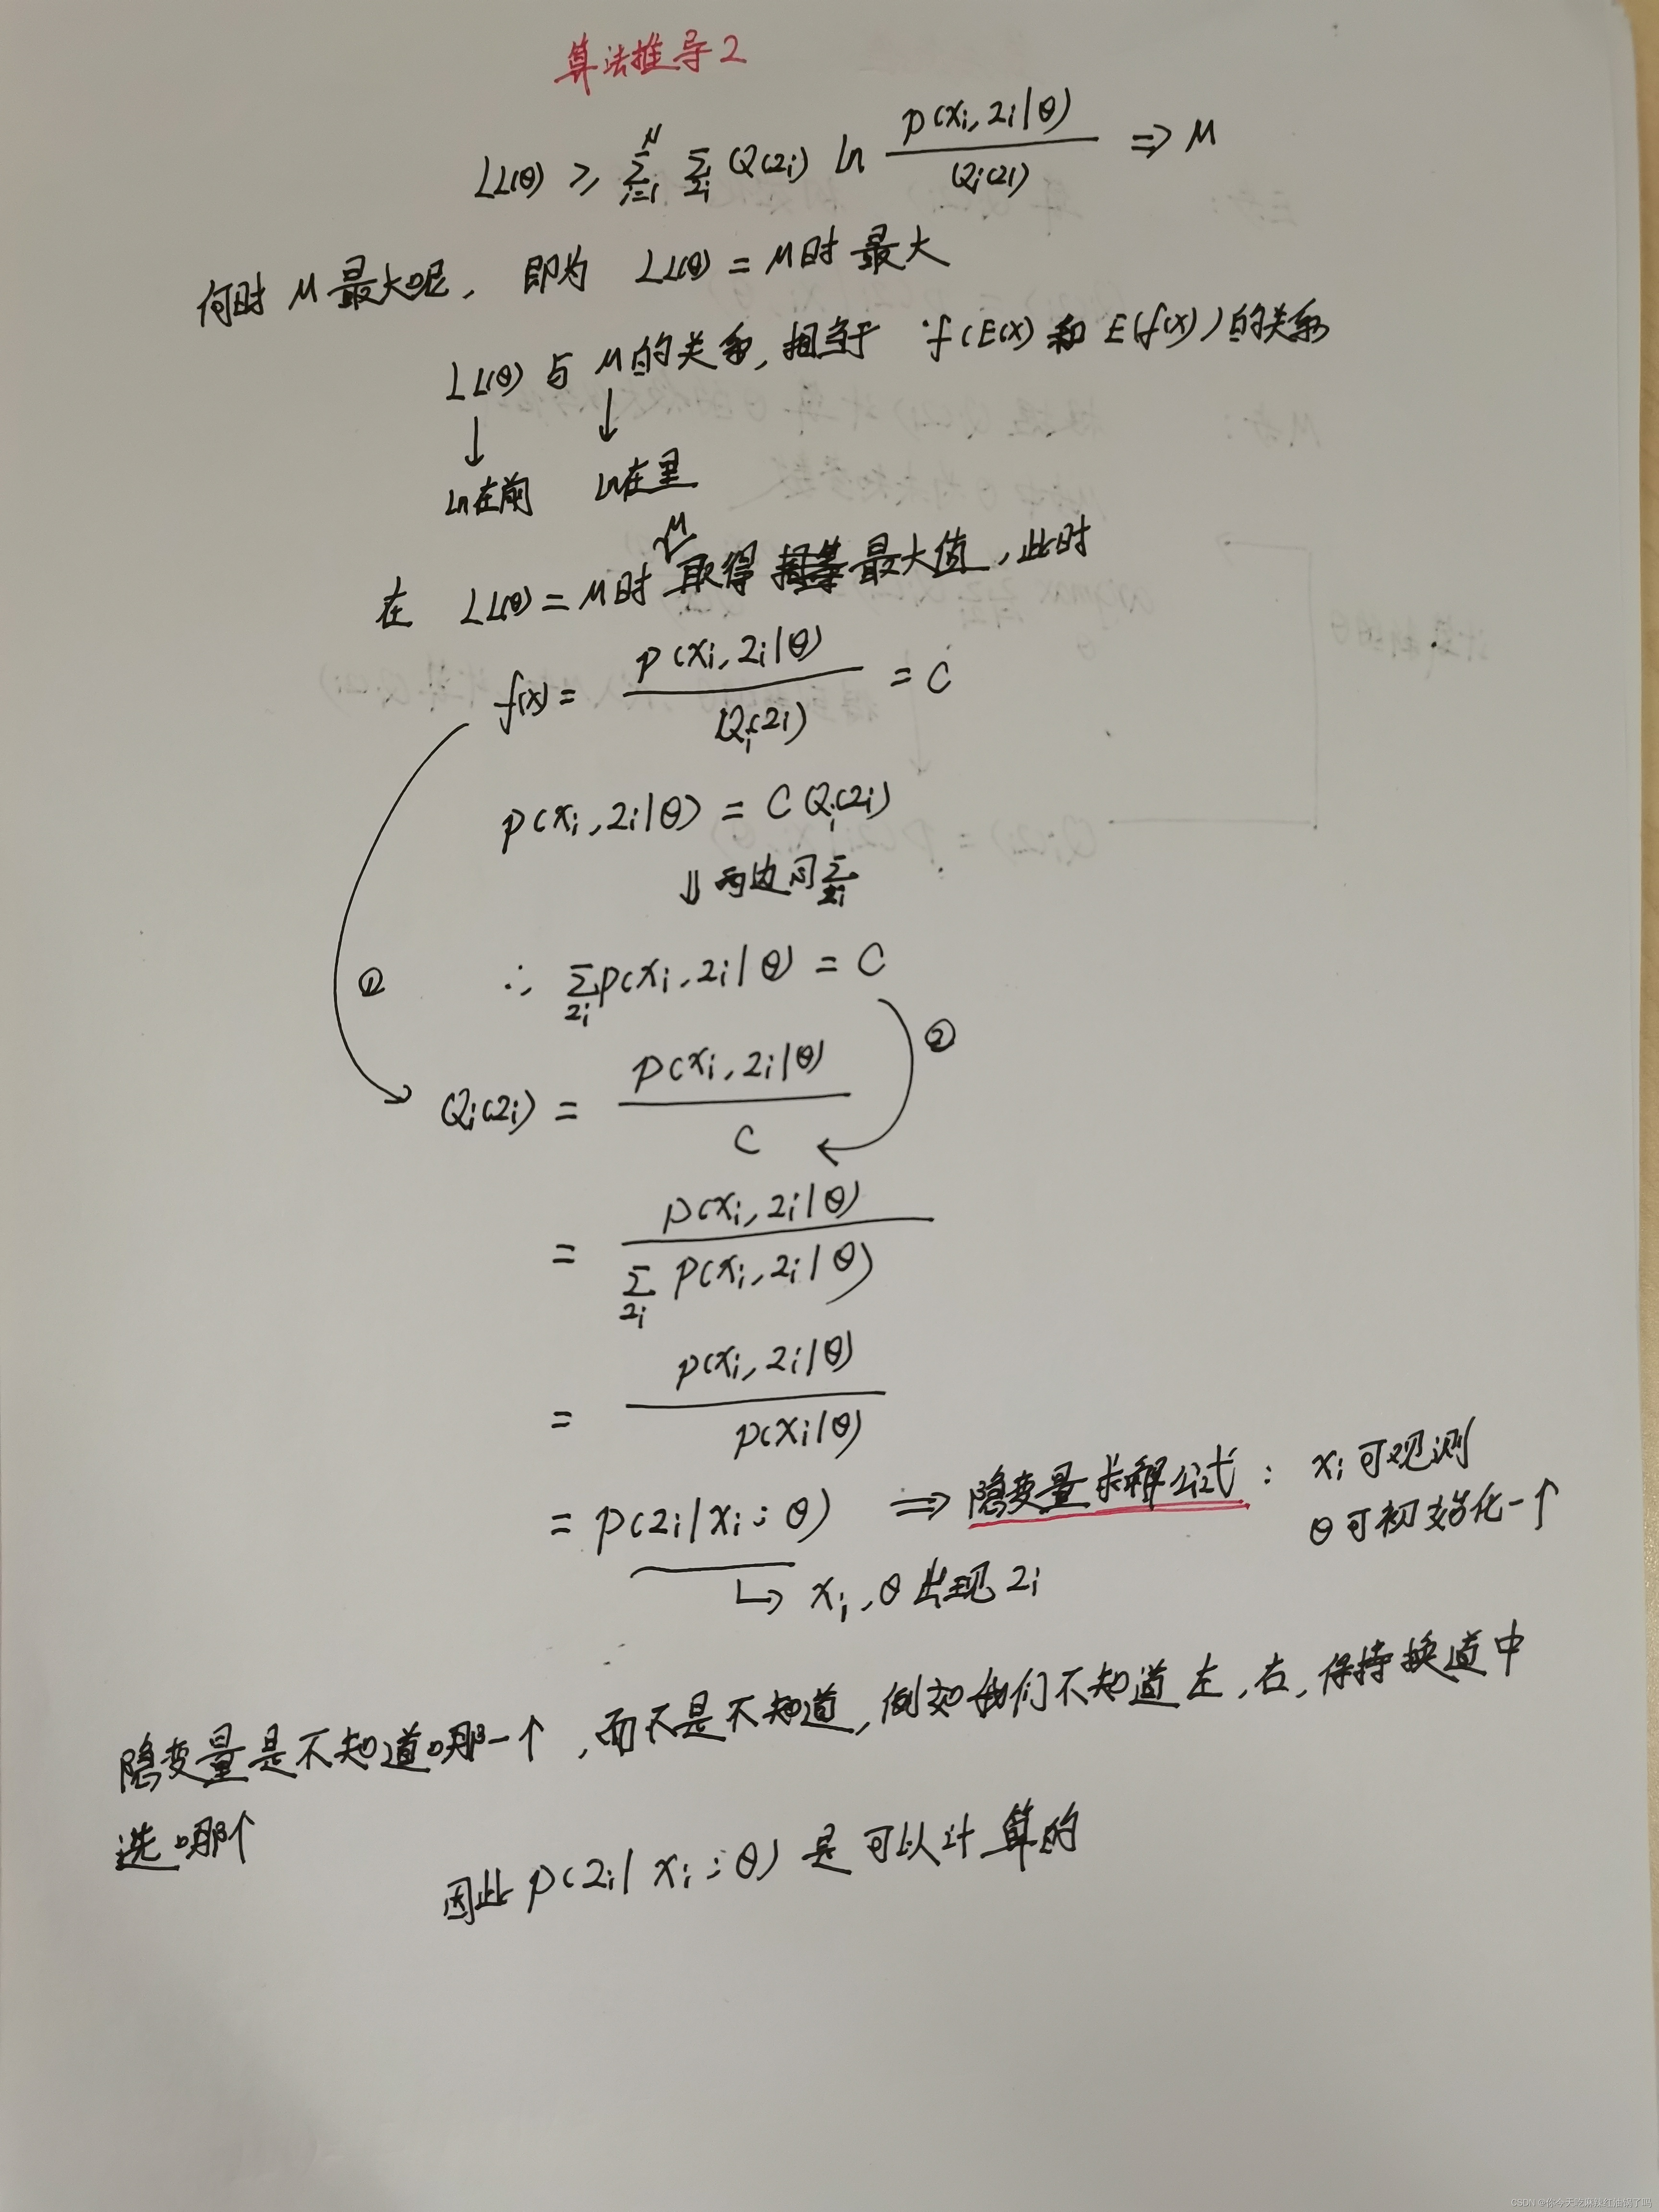 算法推导2
LL(θ) ≥ Σ_{i=1}^{N} Σ_{zi} Q(zi) ln p(xi, zi|θ) / Qi(zi) ⇒ M
何时 M 最大呢, 即为 LL(θ) = M时 最大
LL(θ) 与 M 的关系, 相当于 f(E(x) 和 E(f(x)) 的关系
↓ ↓
ln在前 ln在里
在 LL(θ) = M时 M 取得 最大值, 此时
f(x) = p(xi, zi|θ) / Qi(zi) = C
p(xi, zi|θ) = C Qi(zi)
⇓ 两边同 Σ_{zi}
∴ Σ_{zi} p(xi, zi|θ) = C
① ②
Qi(zi) = p(xi, zi|θ) / C
= p(xi, zi|θ) / Σ_{zi} p(xi, zi|θ)
= p(xi, zi|θ) / p(xi|θ)
= p(zi|xi; θ) ⇒ 隐变量求解公式: xi 可观测
θ 可初始化一个
↳ xi, θ 出现 zi
隐变量是不知道哪一个, 而不是不知道, 例如我们不知道左, 右, 保持换道中
选哪个
因此 p(zi| xi; θ) 是可以计算的
CSDN @你今天吃麻辣红油锅了吗